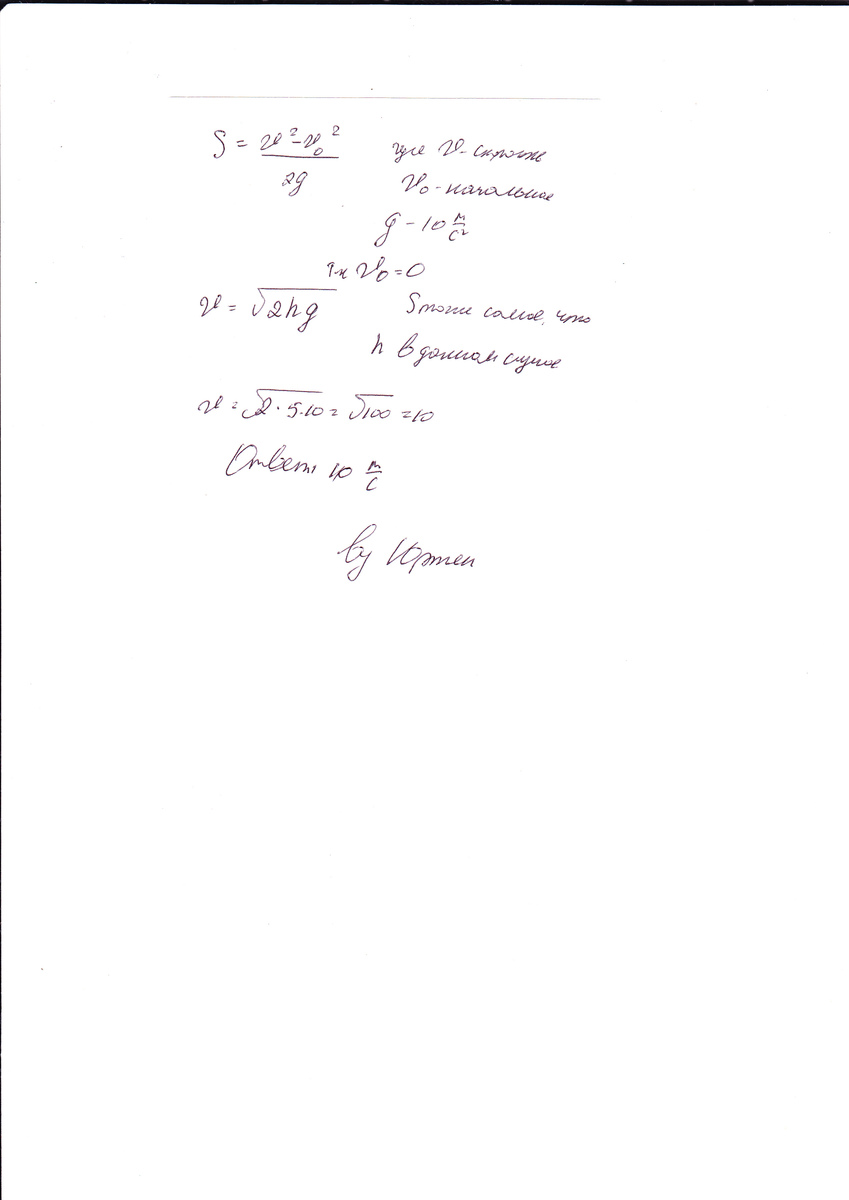 S = (v² - v₀²) / 2g где v - скорость
v₀ - начальное
g - 10 м/с²
т.к v₀ = 0
v = √2hg S тоже самое, что
h в данном случае
v = √2·5·10 = √100 = 10
Ответ: 10 м/с
by